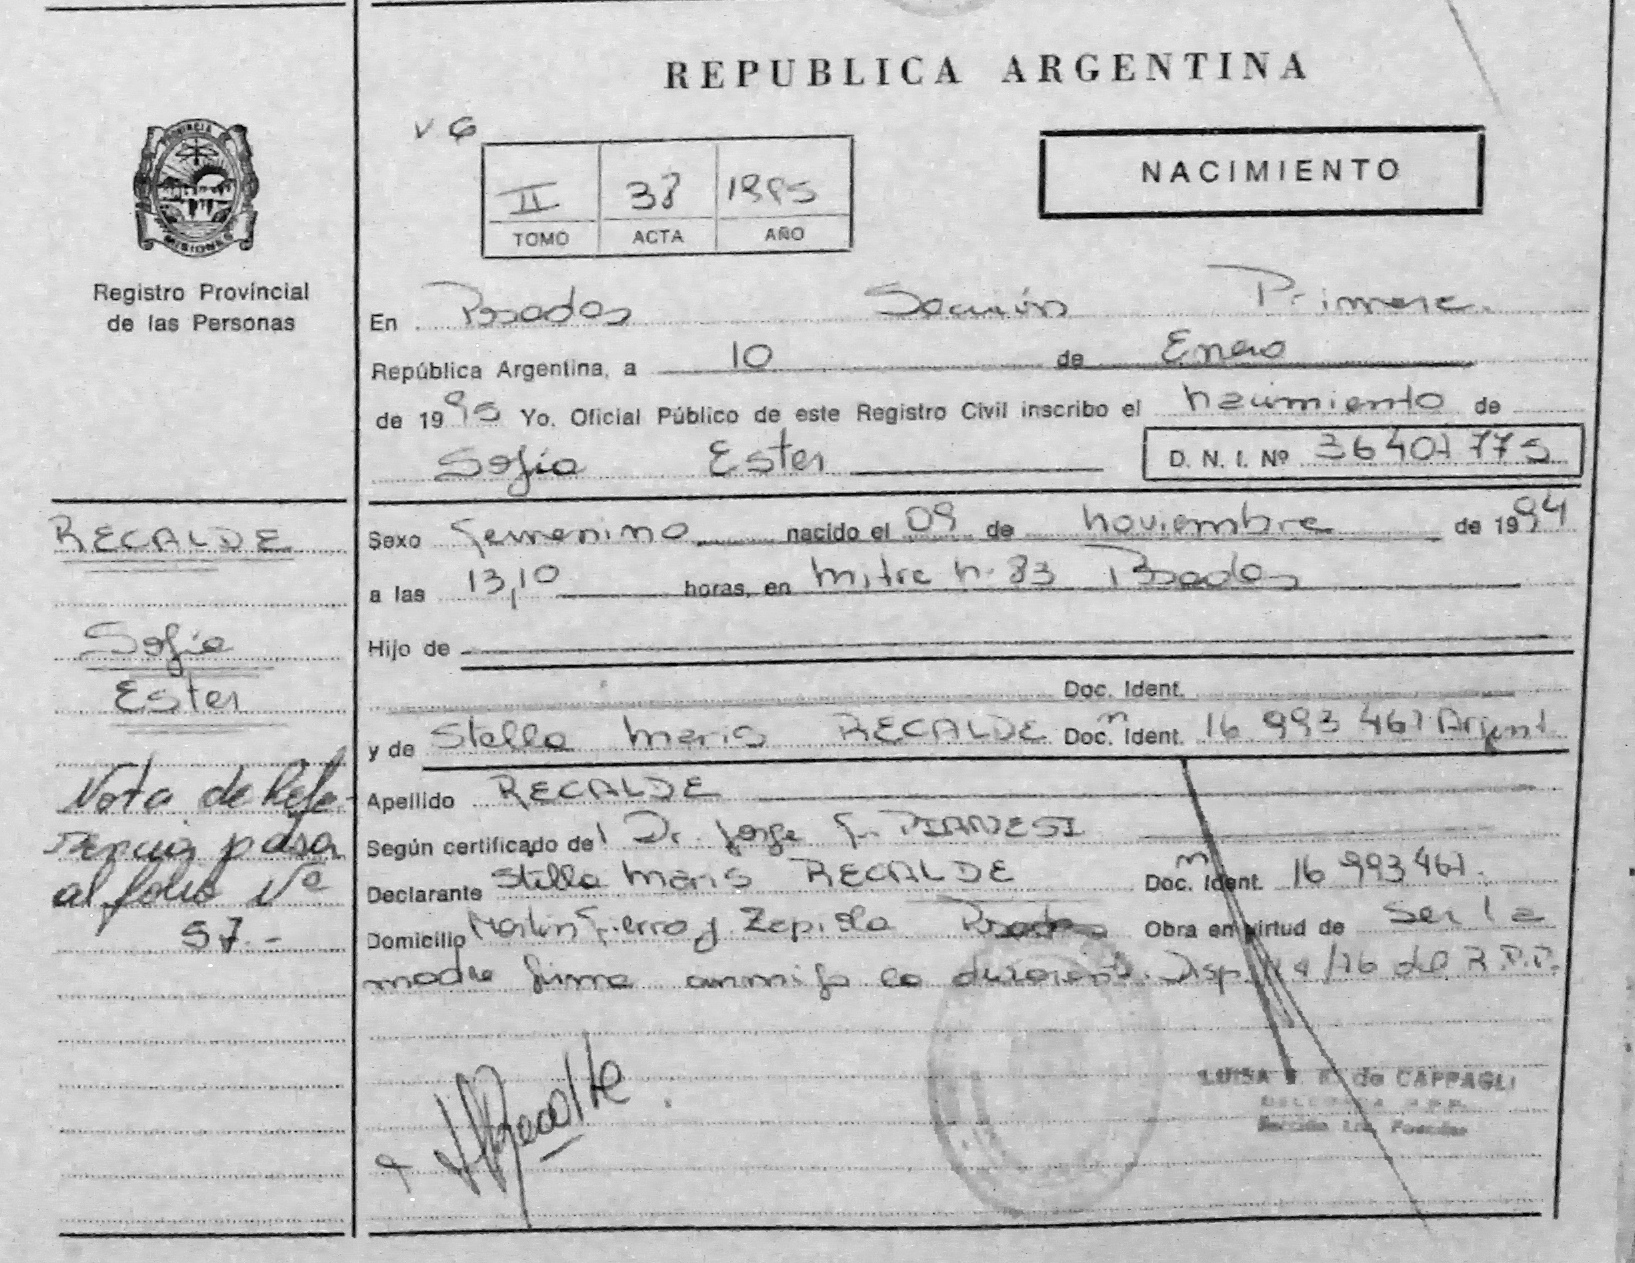 REPUBLICA ARGENTINA
PROVINCIA DE
MISIONES
Registro Provincial
de las Personas
V 6
II 38 1995
TOMO ACTA AÑO
NACIMIENTO
En Posadas Sección Primera.
República Argentina, a 10 de Enero
de 1995 Yo. Oficial Público de este Registro Civil inscribo el nacimiento de
Sofia Ester D. N. I. Nº 36407775
RECALDE
Sofia
Ester
Nota de Refe-
rencia pasa
al folio Nº
57.-
Sexo femenino nacido el 09 de noviembre de 1994
a las 13,10 horas, en Mitre n. 83 Posadas
Hijo de
Doc. Ident.
y de Stella Maris RECALDE Doc. Ident. 16 993 467 Argent
Apellido RECALDE
Según certificado del Dr. Jorge PIANESI
Declarante Stella Maris RECALDE Doc. Ident. 16 993 467.
Domicilio Martin Fierro y Zapiola Posadas Obra en virtud de ser la
madre firma conmigo la Disp. /76 del R.P.P.
Recalde
LUISA de CAPPAGLI
Sección 1ra. Posadas